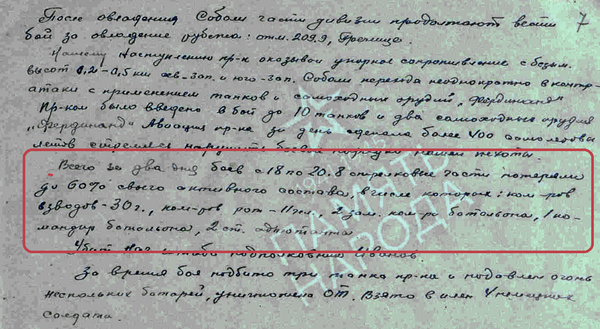 7
После овладения Собали части дивизии продолжают вести
бой за овладение рубежа: отм. 209.9, Гречище.
Нашему наступлению пр-к оказывал упорное сопротивление с безым.
высот 0,2-0,5 км сев-зап. и юго-зап. Собали переходя неоднократно в контр-
атаки с применением танков и самоходных орудий "Фердинанд"
Пр-ком было введено в бой до 10 танков и два самоходных орудия
"Фердинанд" Авиация пр-ка за день сделала более 400 самолетовы
летов стремясь нарушить боевые порядки нашей пехоты.
Всего за два дня боев с 18 по 20.8 стрелковые части потеряли
до 60% своего активного состава в числе которых: ком-ров
взводов-30 ч., ком-ров рот-11 чел, 2 зам. ком-ра батальона, 1 ко-
мандир батальона, 2 ст. адъютанта.
Убит Нач штаба подполковник Иванов.
За время боя подбито три танка пр-ка и подавлен огонь
нескольких батарей, уничтожено ОТ. Взято в плен 4 немецких
солдата.
ПАМЯТЬ
НАРОДА